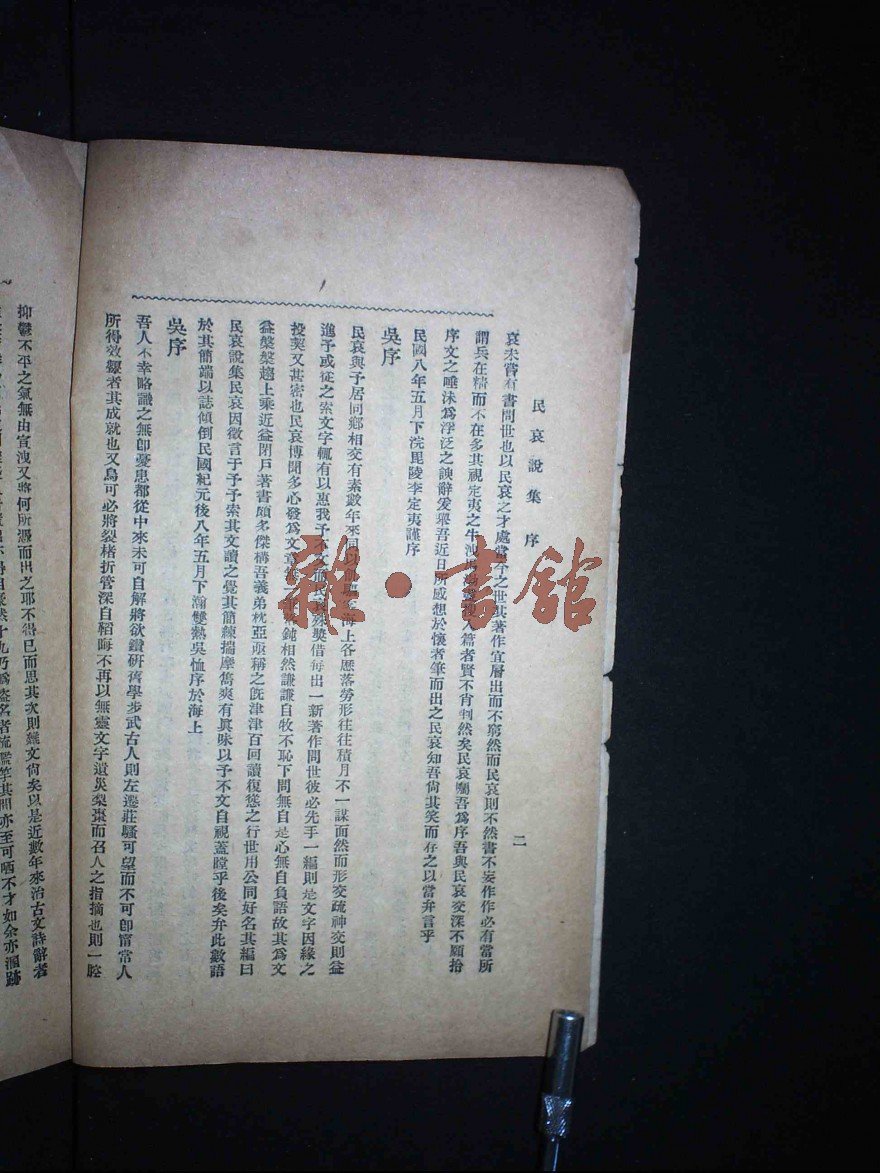 民哀說集 序 二
哀未嘗有書問世也以民哀之才處當今之世其著作宜層出而不窮然而民哀則不然書不妄作作必有當所
謂兵在精而不在多其視定夷之牛溲馬 人篇者賢不肖判然矣民哀囑吾為序吾與民哀交深不願拾
序文之唾沫為浮泛之諛辭爰舉吾近日所感想於懷者筆而出之民哀知吾尙其笑而存之以當弁言乎
民國八年五月下浣毘陵李定夷謹序
吳序
民哀與予居同鄉相交有素數年來同以 海上各歷落勞形往往積月不一謀面然而形交疏神交則益
進予或征之索文字輒有以惠我予不文而民哀 獎借每出一新著作問世彼必先手一編則是文字因緣之
投契又甚密也民哀博聞多心發為文章 鈍相然謙謙自牧不恥下問無自是心無自負語故其為文
益槃槃趨上乘近益閉戶著書頗多傑構吾義弟枕亞亟稱之旣津津百回讀復慫之行世用公同好名其編曰
民哀說集民哀因徵言于予予索其文讀之覺其簡練揣摩雋爽有眞味以予不文自視蓋瞠乎後矣弁此數語
於其簡端以誌傾倒民國紀元後八年五月下瀚雙熱吳恤序於海上
吳序
吾人不幸略識之無卽憂患都從中來未可自解將欲鑽研舊學步武古人則左遷莊騷可望而不可卽甯常人
所得效顰者其成就也又烏可必將裂楮折管深自韜晦不再以無靈文字遺災梨棗而召人之指摘也則一腔
抑鬱不平之氣無由宣洩又將何所憑而出之耶不得已而思其次則雜文尙矣以是近數年來治古文詩辭者
十九乃為盜名者流濫竽其間亦至可哂不才如余亦溷跡